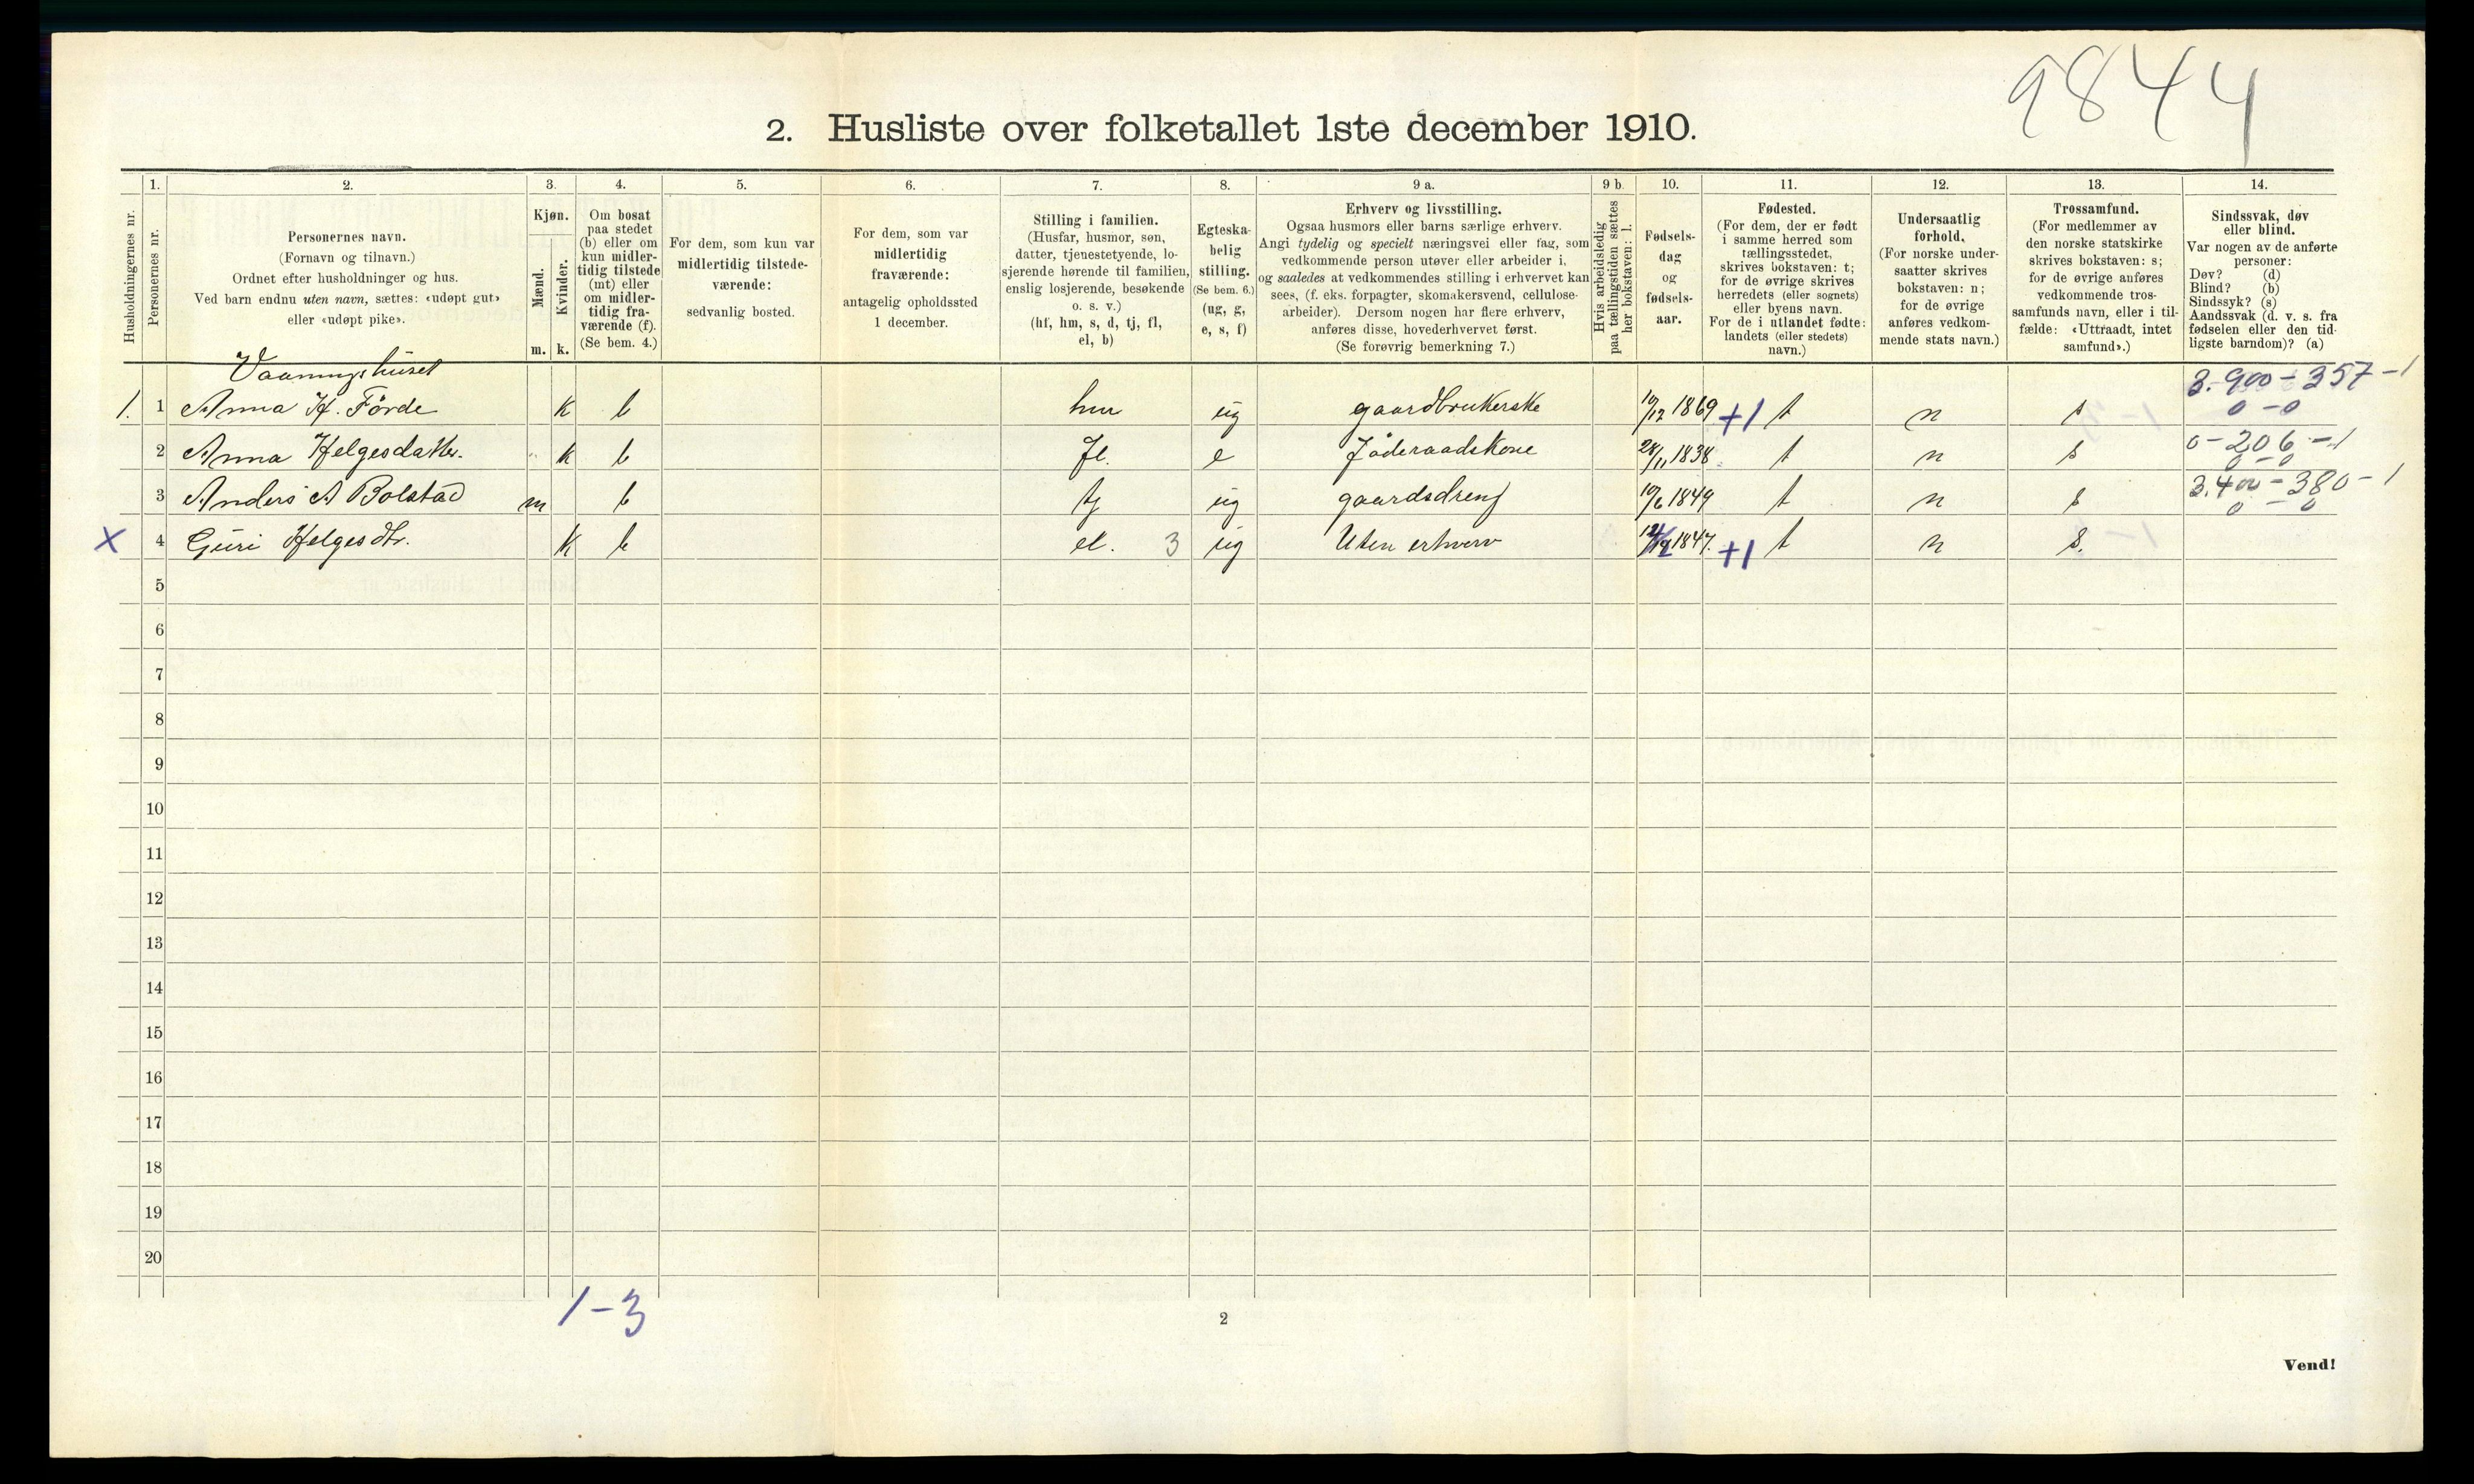 9844
2. Husliste over folketallet 1ste december 1910.
Husholdningernes nr.
1.
Personernes nr.
2.
Personernes navn.
(Fornavn og tilnavn.)
Ordnet efter husholdninger og hus.
Ved barn endnu uten navn, sættes: «udøpt gut»
eller «udøpt pike».
3.
Kjøn.
Mænd.
Kvinder.
m. k.
4.
Om bosat
paa stedet
(b) eller om
kun midler-
tidig tilstede
(mt) eller
om midler-
tidig fra-
værende (f).
(Se bem. 4.)
5.
For dem, som kun var
midlertidig tilstede-
værende:
sedvanlig bosted.
6.
For dem, som var
midlertidig
fraværende:
antagelig opholdssted
1 december.
7.
Stilling i familien.
(Husfar, husmor, søn,
datter, tjenestetyende, lo-
sjerende hørende til familien,
enslig losjerende, besøkende
o. s. v.)
(hf, hm, s, d, tj, fl,
el, b)
8.
Egteska-
belig
stilling.
(Se bem. 6.)
(ug, g,
e, s, f)
9 a.
Erhverv og livsstilling.
Ogsaa husmors eller barns særlige erhverv.
Angi tydelig og specielt næringsvei eller fag, som
vedkommende person utøver eller arbeider i,
og saaledes at vedkommendes stilling i erhvervet kan
sees, (f. eks. forpagter, skomakersvend, cellulose-
arbeider). Dersom nogen har flere erhverv,
anføres disse, hovederhvervet først.
(Se forøvrig bemerkning 7.)
9 b.
Hvis arbeidsledig
paa tællingstiden sættes
her bokstaven: l.
10.
Fødsels-
dag
og
fødsels-
aar.
11.
Fødested.
(For dem, der er født
i samme herred som
tællingsstedet,
skrives bokstaven: t;
for de øvrige skrives
herredets (eller sognets)
eller byens navn.
For de i utlandet fødte:
landets (eller stedets)
navn.)
12.
Undersaatlig
forhold.
(For norske under-
saatter skrives
bokstaven: n;
for de øvrige
anføres vedkom-
mende stats navn.)
13.
Trossamfund.
(For medlemmer av
den norske statskirke
skrives bokstaven: s;
for de øvrige anføres
vedkommende tros-
samfunds navn, eller i til-
fælde: «Uttraadt, intet
samfund».)
14.
Sindssvak, døv
eller blind.
Var nogen av de anførte
personer:
Døv? (d)
Blind? (b)
Sindssyk? (s)
Aandssvak (d. v. s. fra
fødselen eller den tid-
ligste barndom)? (a)
Vaaningshuset
3.900-357-1
1. 1 Anna H. Förde k b hm ug gaardbrukerske 10/12 1869 +1 t n s 0-0
2 Anna Helgesdatter. k b fl. e Föderaadskone 28/11 1838 t n s 0-206-1
0-0
3 Anders A Bolstad m b tj ug gaardsdreng 10/6 1849 t n s 3.400-380-1
0-0
X 4 Guri Helgesdtr. k b el. 3 ug Uten erhverv 1847. +1 t n s.
5
6
7
8
9
10
11
12
13
14
15
16
17
18
19
20
1-3
2
Vend!